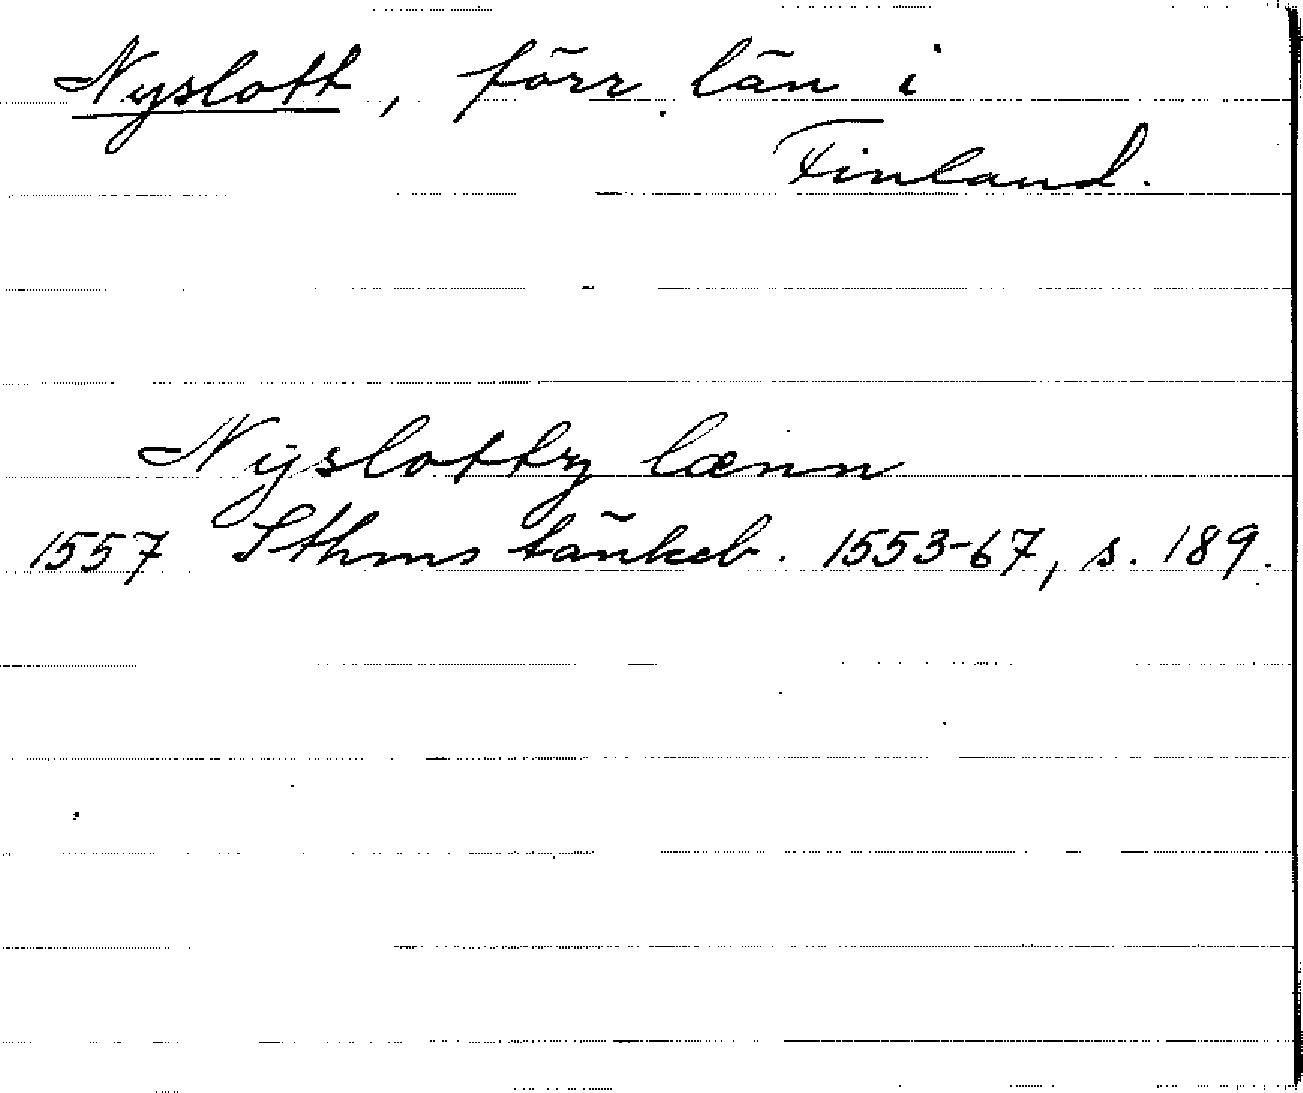 Nyslott, förr. län i
Finland.
Nyslottz lænn
1557 Sthms tänkeb. 1553-67, s. 189.